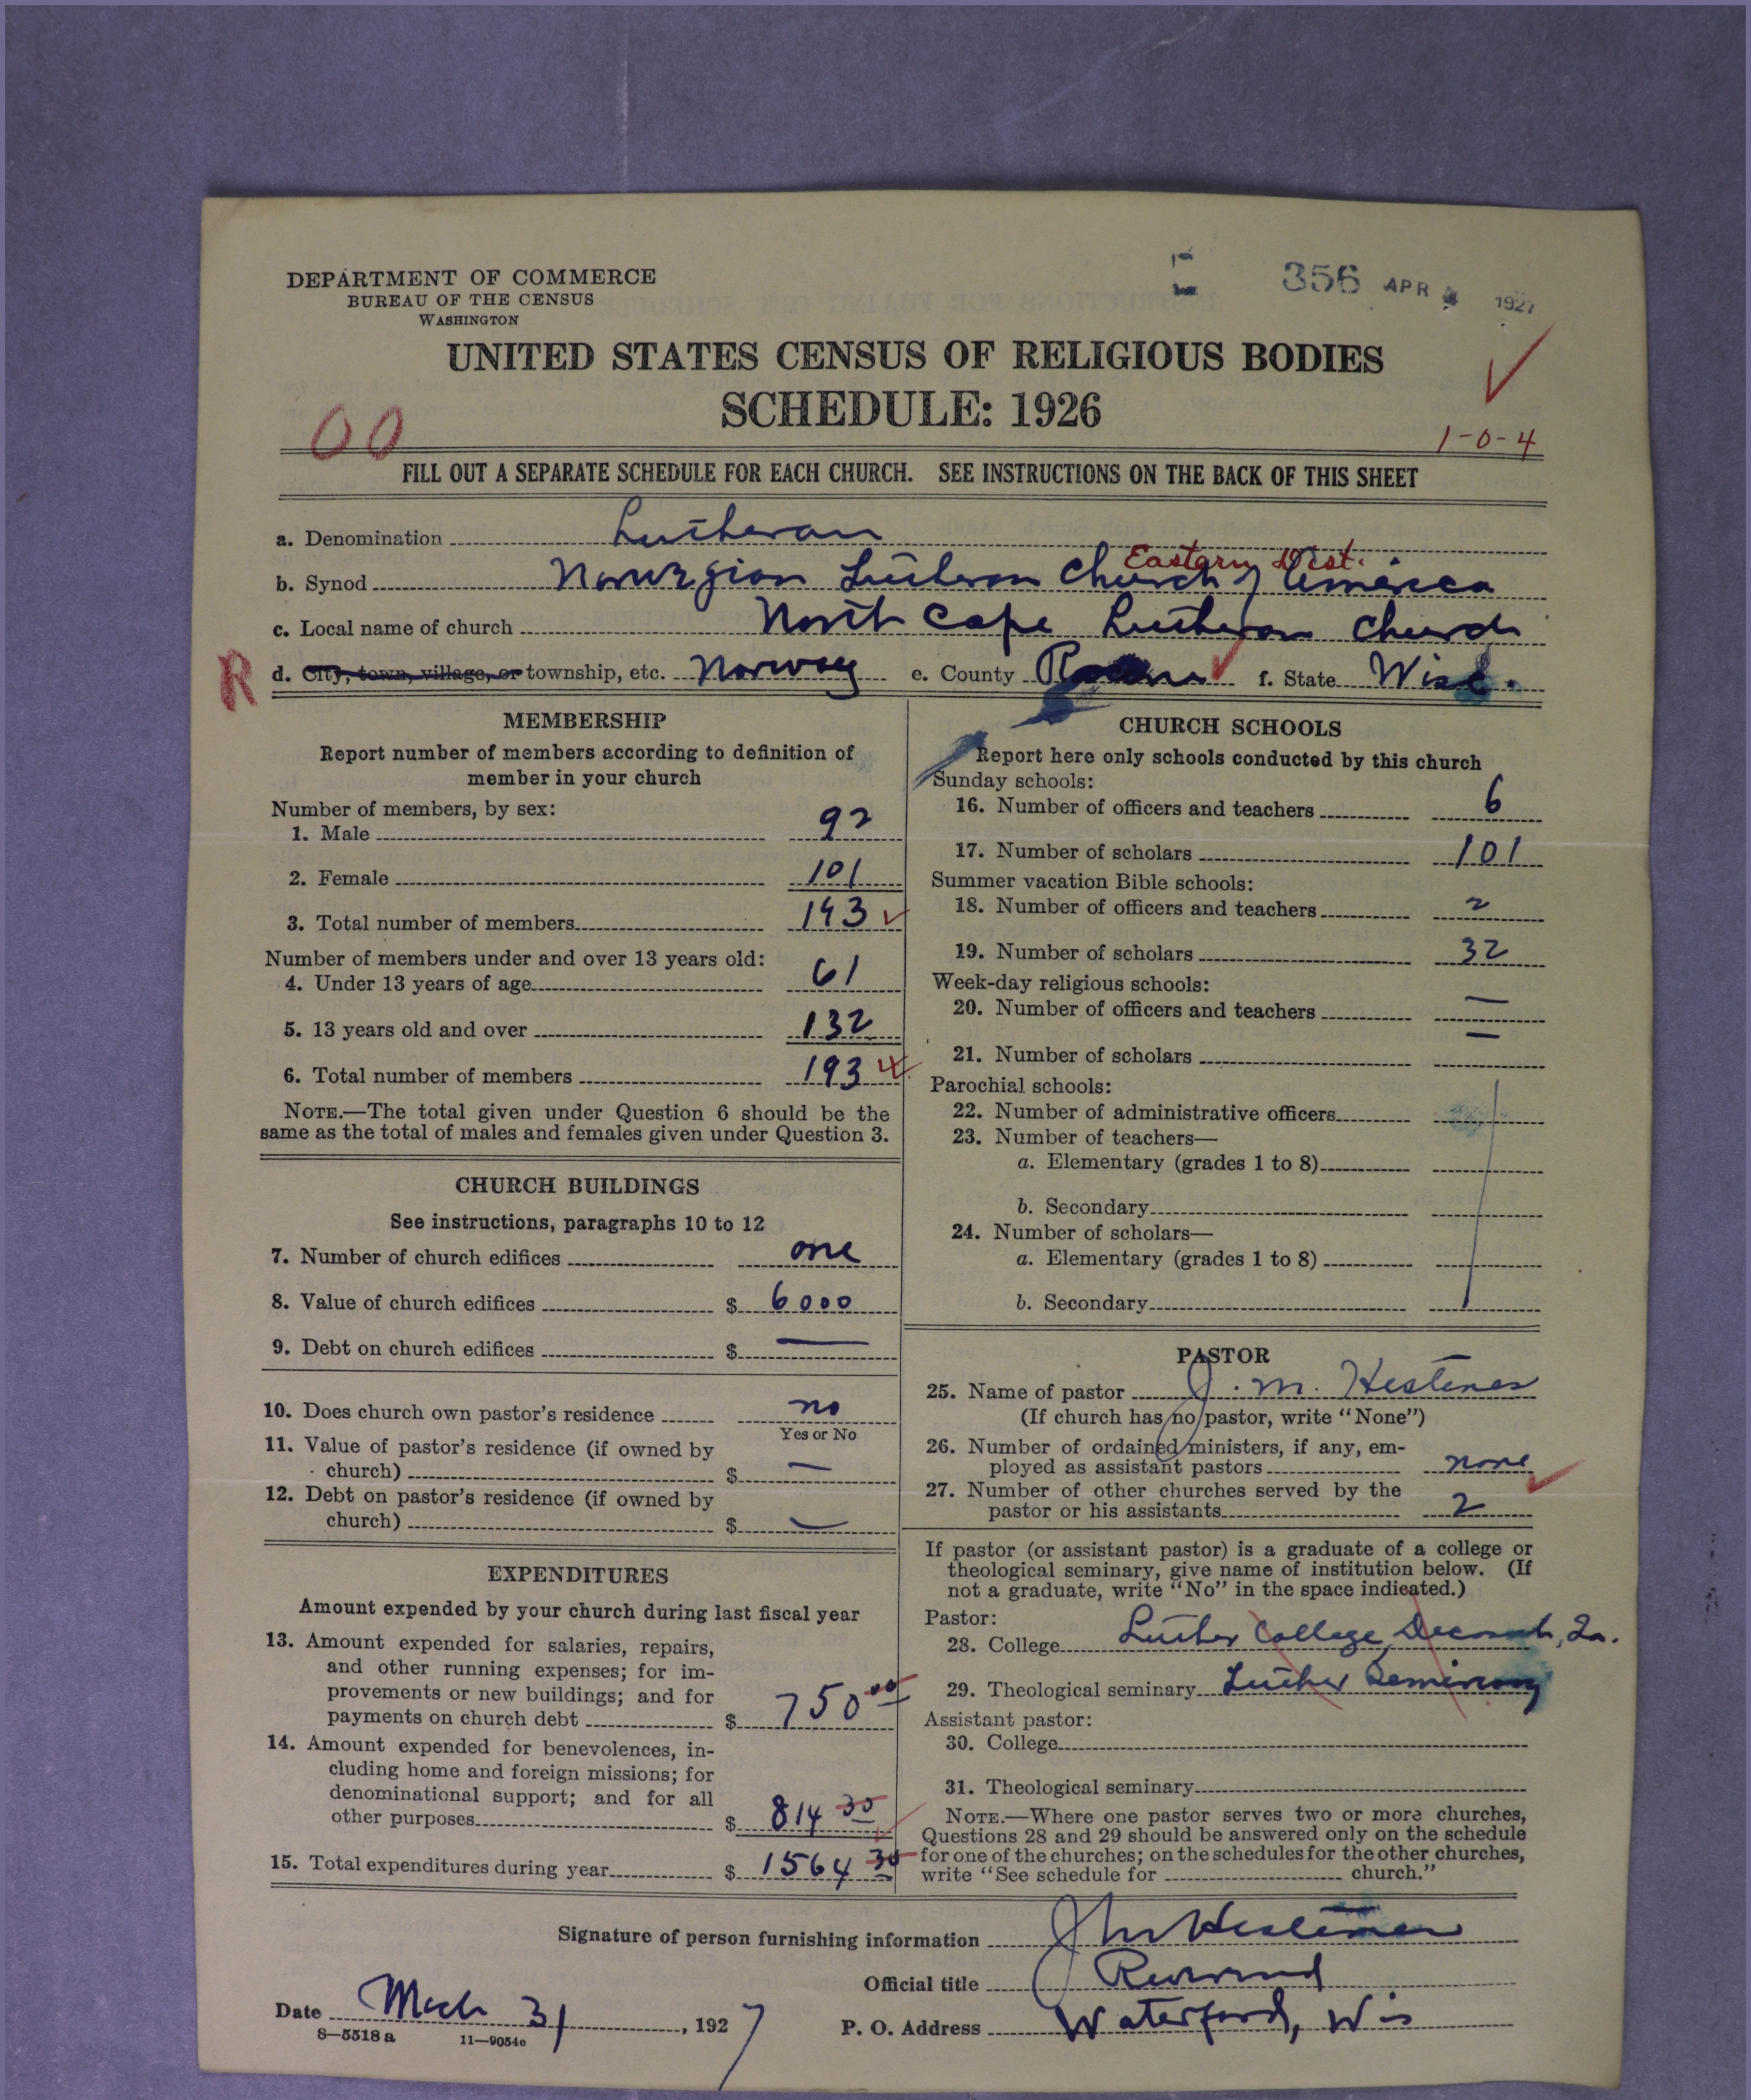 DEPARTMENT OF COMMERCE
BUREAU OF THE CENSUS
WASHINGTON
356 APR 1927
UNITED STATES CENSUS OF RELIGIOUS BODIES
SCHEDULE: 1926
00
1-0-4
FILL OUT A SEPARATE SCHEDULE FOR EACH CHURCH. SEE INSTRUCTIONS ON THE BACK OF THIS SHEET
a. Denomination Lutheran
Eastern Dist.
b. Synod Norwegian Lutheran Church of America
c. Local name of church North Cape Lutheran Church
R
d. City, town, village, or township, etc. Norway e. County Racine f. State Wisc.
MEMBERSHIP
Report number of members according to definition of
member in your church
Number of members, by sex:
1. Male 92
2. Female 101
3. Total number of members 193
Number of members under and over 13 years old:
4. Under 13 years of age 61
5. 13 years old and over 132
6. Total number of members 193
NOTE.—The total given under Question 6 should be the
same as the total of males and females given under Question 3.
CHURCH BUILDINGS
See instructions, paragraphs 10 to 12
7. Number of church edifices one
8. Value of church edifices $ 6000
9. Debt on church edifices $ —
10. Does church own pastor's residence no
Yes or No
11. Value of pastor's residence (if owned by
church) $ —
12. Debt on pastor's residence (if owned by
church) $ —
EXPENDITURES
Amount expended by your church during last fiscal year
13. Amount expended for salaries, repairs,
and other running expenses; for im-
provements or new buildings; and for
payments on church debt $ 750 00
14. Amount expended for benevolences, in-
cluding home and foreign missions; for
denominational support; and for all
other purposes $ 814 30
15. Total expenditures during year $ 1564 30
CHURCH SCHOOLS
Report here only schools conducted by this church
Sunday schools:
16. Number of officers and teachers 6
17. Number of scholars 101
Summer vacation Bible schools:
18. Number of officers and teachers 2
19. Number of scholars 32
Week-day religious schools:
20. Number of officers and teachers —
21. Number of scholars —
Parochial schools:
22. Number of administrative officers
23. Number of teachers—
a. Elementary (grades 1 to 8)
b. Secondary
24. Number of scholars—
a. Elementary (grades 1 to 8)
b. Secondary
PASTOR
25. Name of pastor J. M. Hestenes
(If church has no pastor, write "None")
26. Number of ordained ministers, if any, em-
ployed as assistant pastors none
27. Number of other churches served by the
pastor or his assistants 2
If pastor (or assistant pastor) is a graduate of a college or
theological seminary, give name of institution below. (If
not a graduate, write "No" in the space indicated.)
Pastor:
28. College Luther College, Decorah, Ia.
29. Theological seminary Luther Seminary
Assistant pastor:
30. College
31. Theological seminary
NOTE.—Where one pastor serves two or more churches,
Questions 28 and 29 should be answered only on the schedule
for one of the churches; on the schedules for the other churches,
write "See schedule for church."
Signature of person furnishing information J M Hestenes
Official title Reverend
Date Mch 31, 1927
P. O. Address Waterford, Wis
8—5518 a 11—9054e